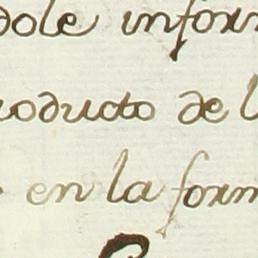 dole inform
roducto de l
en la form